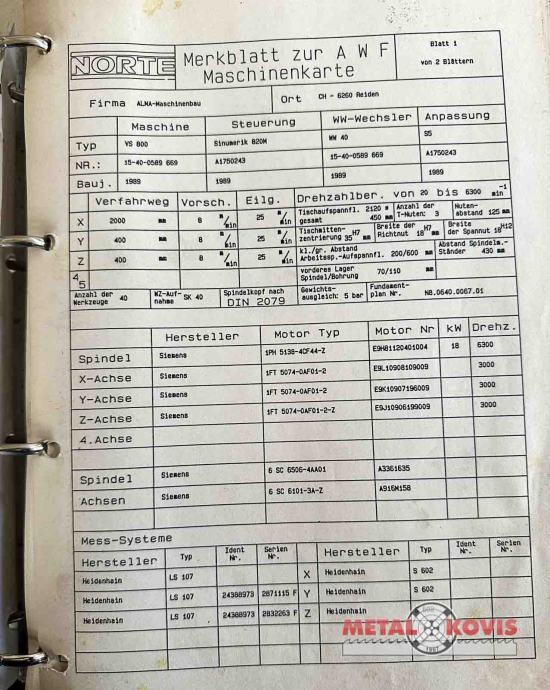 NORTE
Merkblatt zur A W F
Maschinenkarte
Blatt 1
von 2 Blättern
Firma ALMA-Maschinenbau Ort CH - 6260 Reiden
Maschine Steuerung WW-Wechsler Anpassung
Typ VS 800 Sinumerik 820M WW 40 S5
NR.: 15-40-0589 669 A1750243 15-40-0589 669 A1750243
Bauj. 1989 1989 1989 1989
Verfahrweg Vorsch. Eilg. Drehzahlber. von 20 bis 6300 min-1
X 2000 mm 8 m/min 25 m/min Tischaufspannfl. 2120 * gesamt 450 mm Anzahl der T-Nuten: 3 Nuten-abstand 125 mm
Y 400 mm 8 m/min 25 m/min Tischmitten-zentrierung 35 H7 mm Breite der Richtnut 18 H7 mm Breite der Spannut 18 H12
Z 400 mm 8 m/min 25 m/min kl./gr. Abstand Arbeitssp.-Aufspannfl. 200/600 mm Abstand Spindelm.-Ständer 430 mm
4 vorderes Lager Spindel/Bohrung 70/110 mm
5
Anzahl der Werkzeuge 40 WZ-Auf-nahme SK 40 Spindelkopf nach DIN 2079 Gewichts-ausgleich: 5 bar Fundament-plan Nr. N8.0640.0067.01
Hersteller Motor Typ Motor Nr kW Drehz.
Spindel Siemens 1PH 5138-4CF44-Z E9H81120401004 18 6300
X-Achse Siemens 1FT 5074-0AF01-2 E9L10908109009 3000
Y-Achse Siemens 1FT 5074-0AF01-2 E9K10907196009 3000
Z-Achse Siemens 1FT 5074-0AF01-2-Z E9J10906199009 3000
4.Achse
Spindel Siemens 6 SC 6506-4AA01 A3361635
Achsen Siemens 6 SC 6101-3A-Z A916M158
Mess-Systeme
Hersteller Typ Ident Nr. Serien Nr. Hersteller Typ Ident Nr. Serien Nr.
Heidenhain LS 107 X Heidenhain S 602
Heidenhain LS 107 24388973 2871115 F Y Heidenhain S 602
Heidenhain LS 107 24388973 2832263 F Z Heidenhain
METAL KOVIS